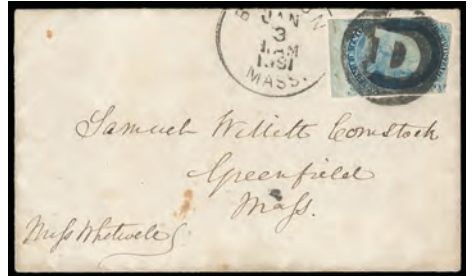 JAN
3
1861
MASS.
D
Samuel Willett Comstock
Greenfield
Mass.
Miss Whitwell